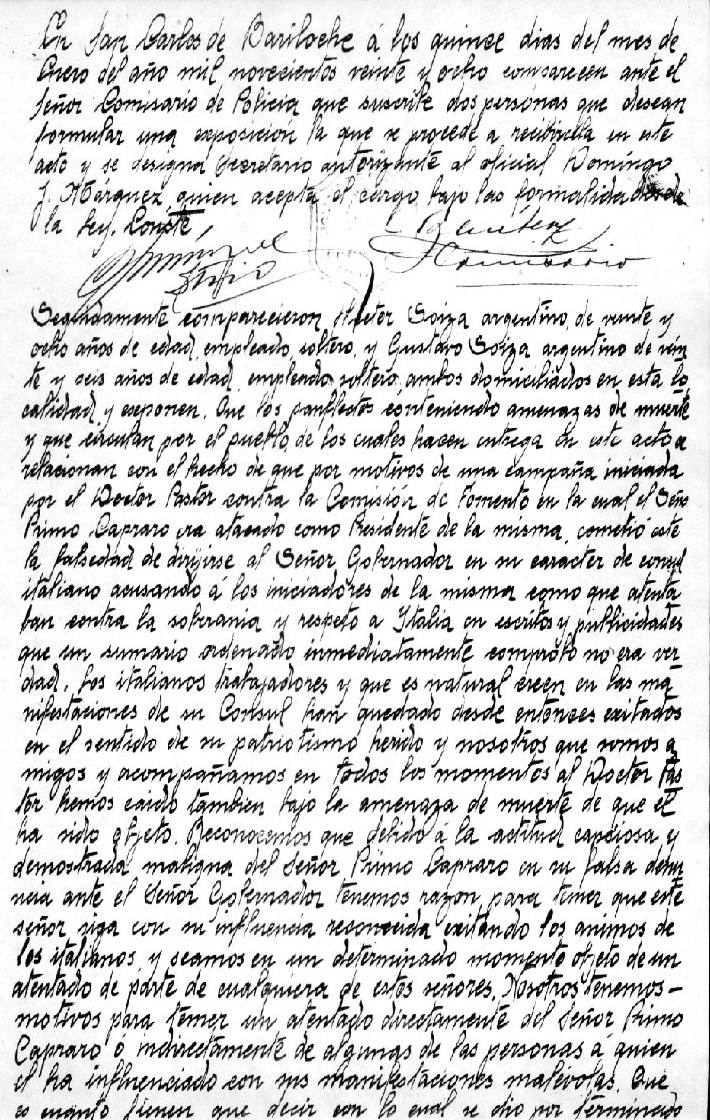 En San Carlos de Bariloche á los quince dias del mes de
Enero del año mil novecientos veinte y ocho comparecen ante el
Señor Comisario de Policia que suscribe dos personas que desean
formular una exposicion la que se procede a recibirella en este
acto y se designa Secretario autorizante al oficial Domingo
J. Marquez quien acepta el cargo bajo las formalidades de
la Ley. Conste
Comisario
Seguidamente comparecieron Hector Soiza argentino, de veinte y
ocho años de edad, empleado, soltero, y Gustavo Soiza argentino de vein
te y seis años de edad, empleado, soltero, ambos domiciliados en esta lo
calidad, y exponen. Que los panflectos conteniendo amenazas de muerte
y que circulan por el pueblo, de los cuales hacen entrega en este acto se
relacionan con el hecho de que por motivos de una campaña iniciada
por el Doctor Pastor contra la Comisión de Fomento en la cual el Señor
Primo Capraro era atacado como Presidente de la misma, cometió este
la falsedad de dirijirse al Señor Gobernador en su caracter de consul
italiano acusando á los iniciadores de la misma como que atenta
ban contra la soberania y respeto a Italia en escritos y publicidades
que un sumario ordenado inmediatamente comprobó no era ver
dad. Los italianos trabajadores y que es natural creen en las ma
nifestaciones de su Consul han quedado desde entonces exitados
en el sentido de su patriotismo herido y nosotros que somos a
migos y acompañamos en todos los momentos al Doctor Pas
tor hemos caido tambien bajo la amenaza de muerte de que el
ha sido objeto. Reconocemos que debido á la actitud capciosa y
demostrada maligna del Señor Primo Capraro en su falsa denun
ncia ante el Señor Gobernador tenemos razon para temer que este
señor siga con su influencia reconocida exitando los animos de
los italianos y seamos en un determinado momento objeto de un
atentado de parte de cualquiera de estos señores. Nosotros tenemos-
motivos para temer un atentado directamente del Señor Primo
Capraro ó indirectamente de algunas de las personas á quien
el ha influenciado con sus manifestaciones malévolas. Que
es cuanto tienen que decir con lo cual se dio por terminado